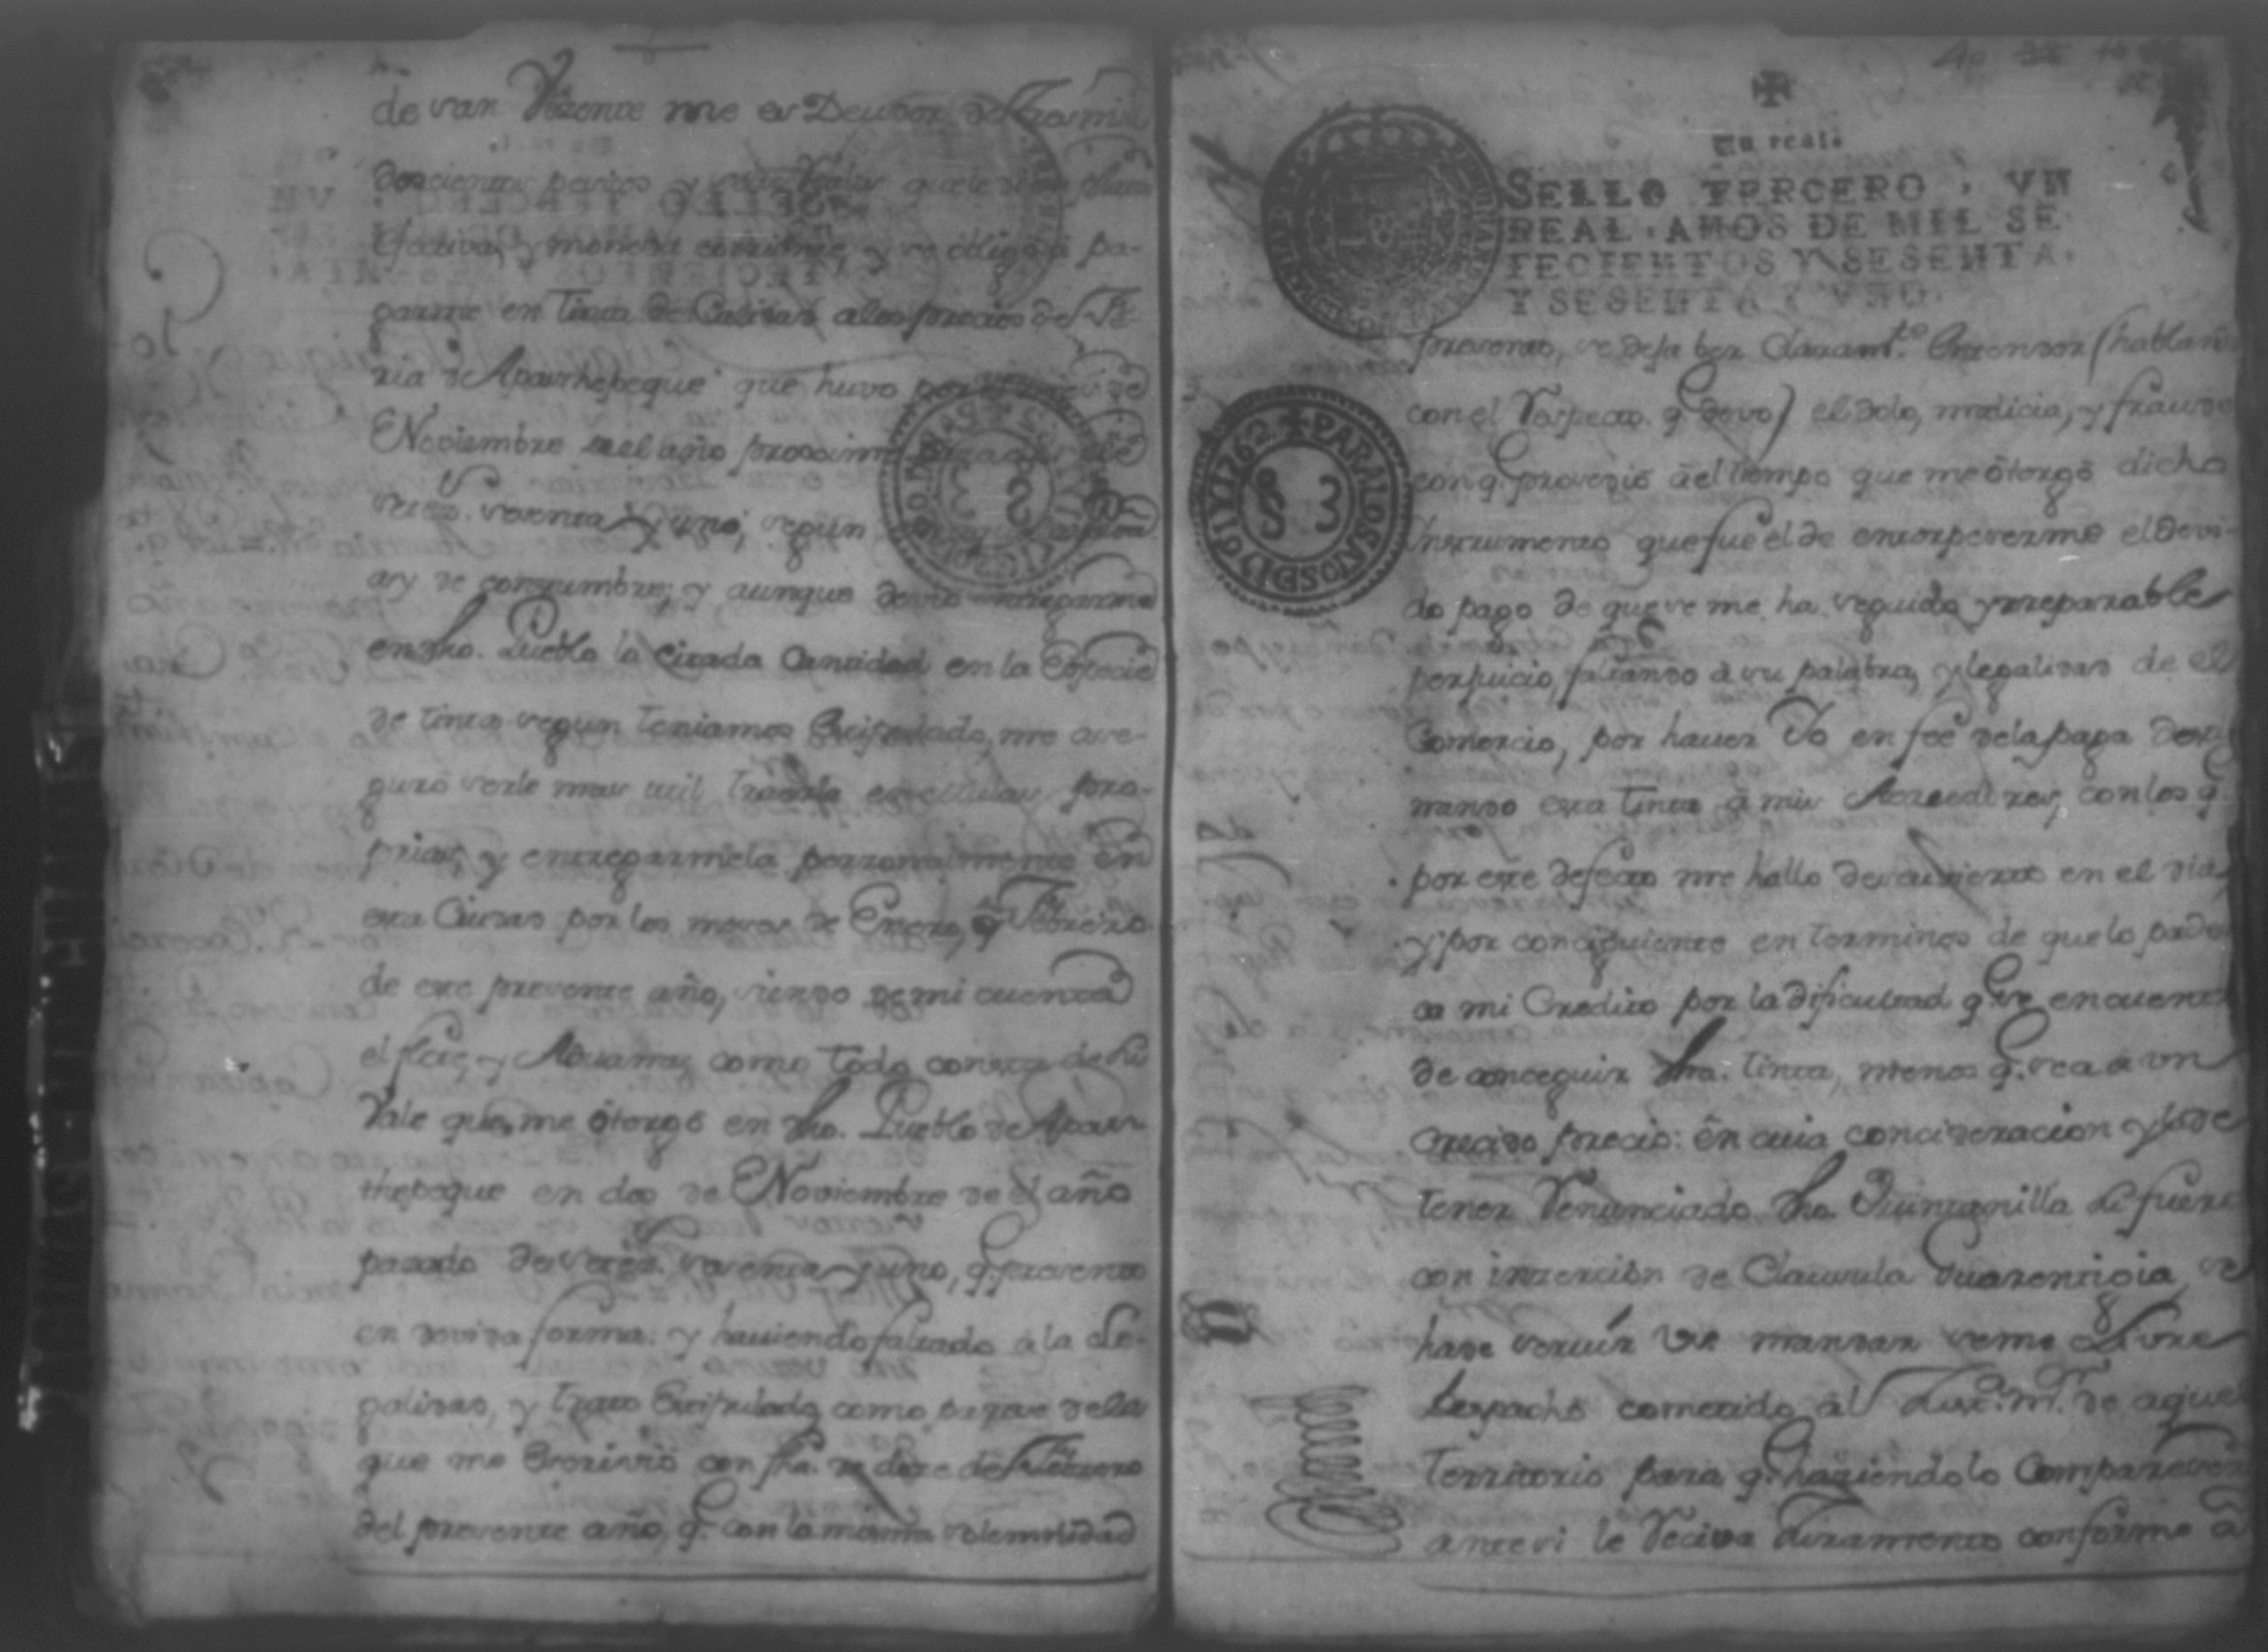 de san Vizente me es Deudor de Tres mil
doscientos pessos y seis Reales que le di en plata
efectiva, y moneda corriente, y se obligó a pa-
garme en tinta de Calidad a los precios de Fe-
ria de Apasthepeque que huvo por
Noviembre del año proximo
setez. sesenta y uno, segun
es de constumbre; y aunque devio entregarme
en dho. Pueblo la citada Cantidad en la Especie
de tinta segun teniamos Estipulado, me ase-
guró serle mas util traerla en mulas pro-
prias, y entregarmela personalmente en
esta Ciudad por los meses de Enero, ó Febrero
de este presente año, siendo de mi cuenta
el flete, y Aduana, como todo consta de su
Vale que, me ôtorgó en dho. Pueblo de Apas-
thepeque en dos de Noviembre de el año
pasado de setez. sesenta y uno, q. presento
en devida forma: y haviendo faltado a la Le-
galidad, y trato Estipulado, como parece de la
que me Escrivió con fha. de doze de Febrero
del presente año, q. con la misma solemnidad
40
Un real.
SELLO TERCERO, VN
REAL, AÑOS DE MIL SE
TECIENTOS Y SESENTA,
Y SESENTA Y VNO.
PARA LOS AÑOS DE 1761 Y 1762
presento, se deja ber claram.te entender (hablando
con el Respecto q. devo) el dolo, malicia, y fraude
con q. provedió â el tiempo que me ôtorgó dicho
Instrumento que fue el de entorpeserme el devi-
do pago de que se me ha seguido yrreparable
perjuicio, faltando à su palabra, y legalidad de el
Comercio, por haver Yo en fee de la paga
mando esta tinta â mis Acreedores, con los q.
por este defecto me hallo descuvierto en el dia,
y por consiguiente en terminos de que lo pade
sa mi Credito por la dificultad q. se encuentra
de conceguir dha. tinta, menos q. sea a un
crecido precio: en cuia concideracion y la de
tener Renunciado dho. Quintanilla su fuero
con incercion de Clausula Guarentigia, se
hade servir Vs. mandar se me Libre
Despacho cometido âl Ju.z m.r de aquel
Territorio para q. haziendolo Comparecer
ante si le Reciva Juramento conforme â